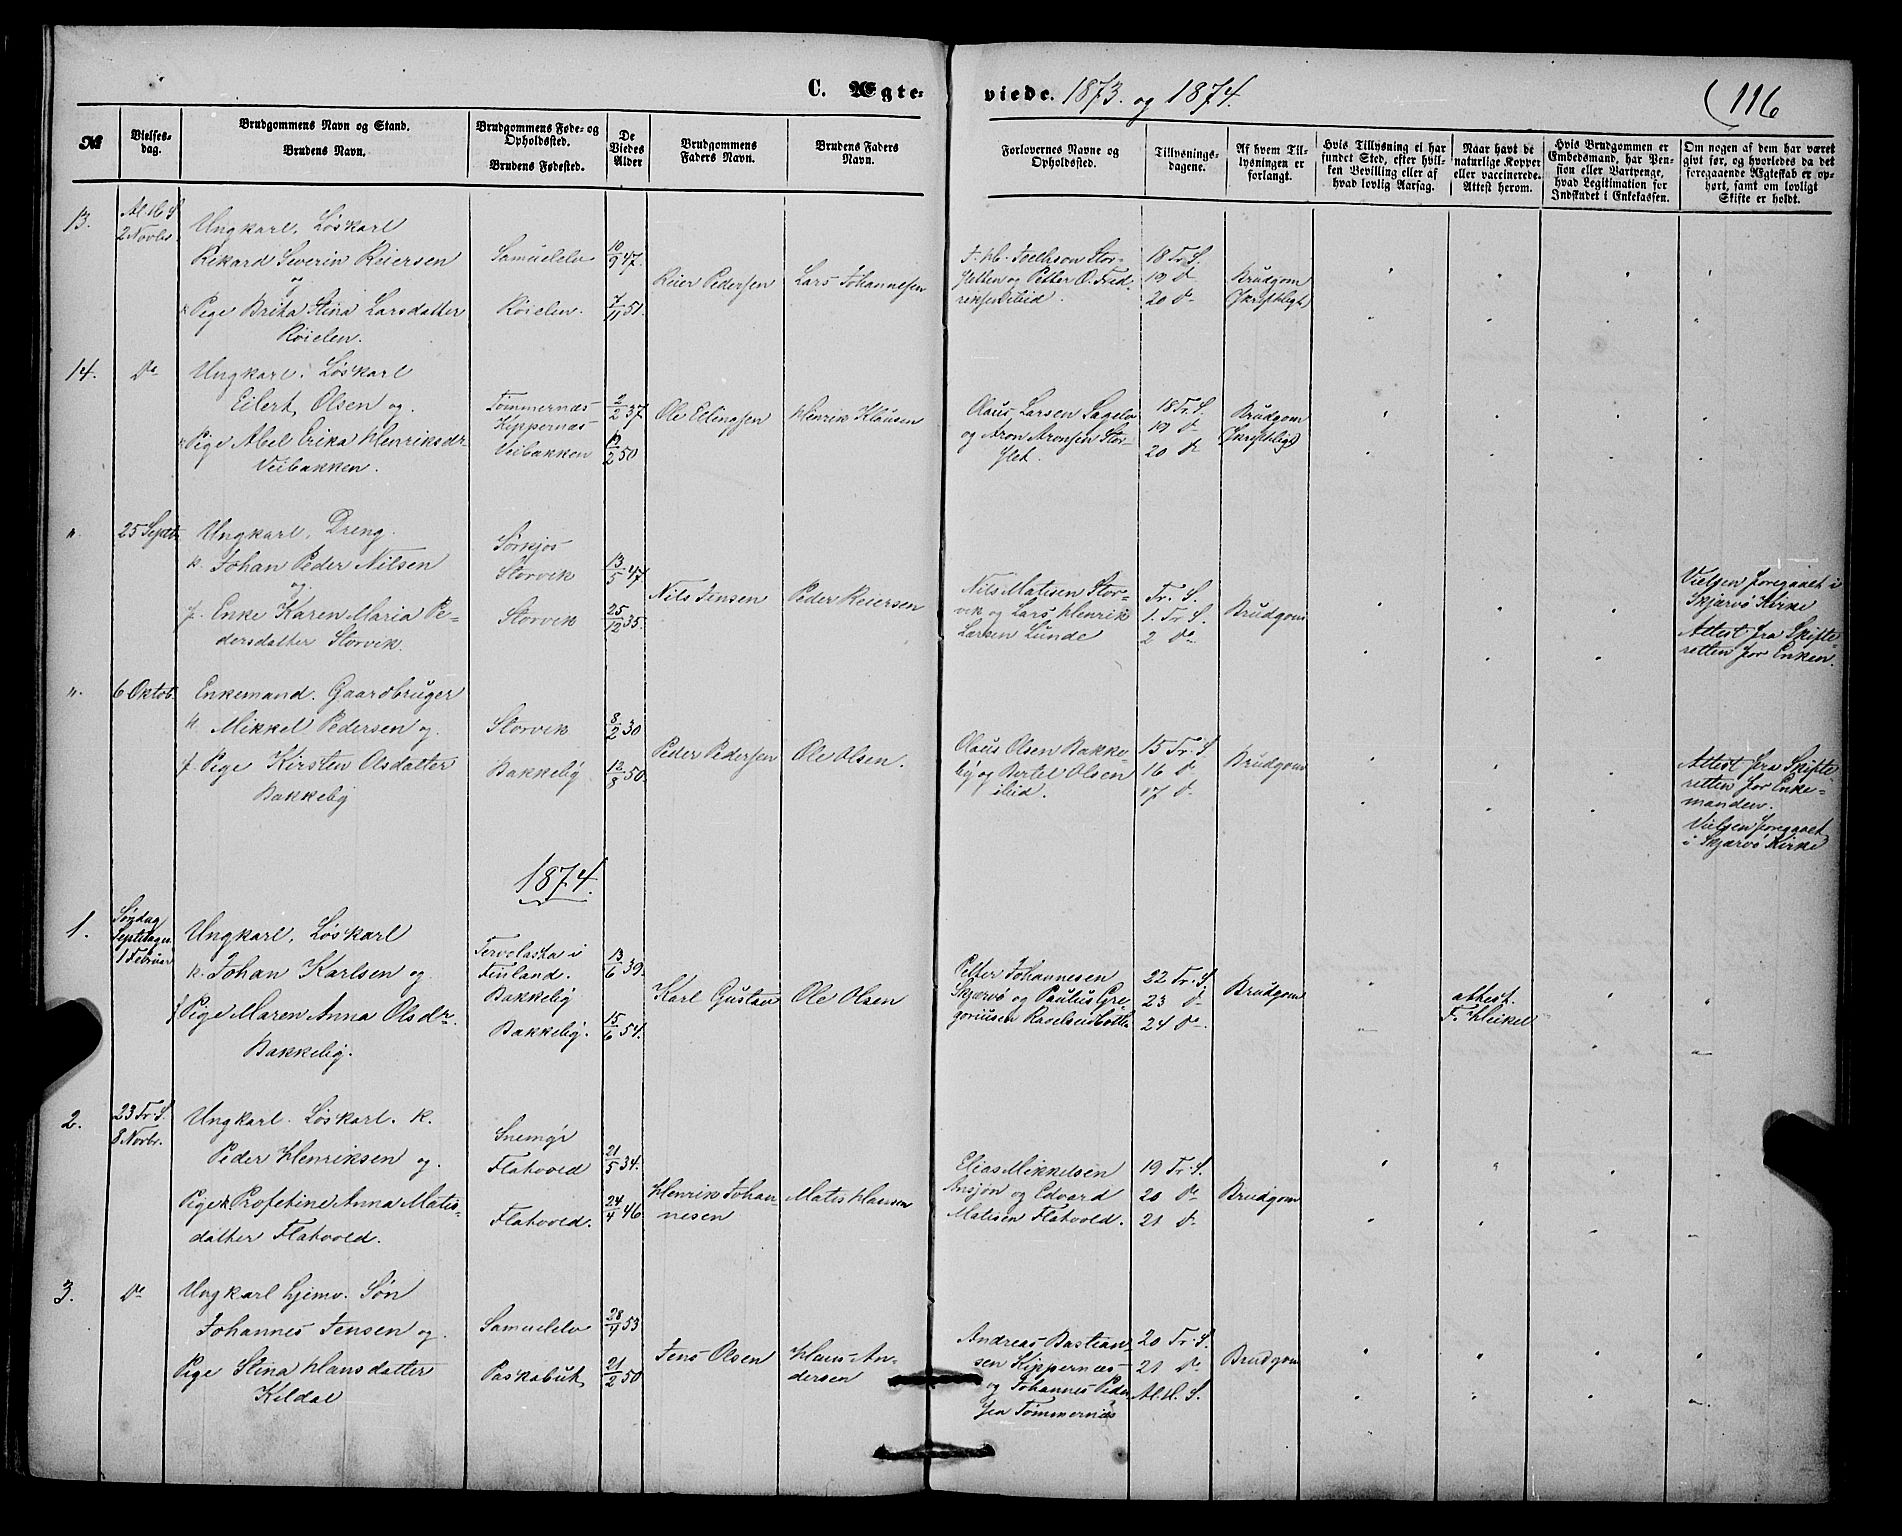 C. Ægteviede. 1873. og 1874
116
№
Vielsesdag.
Brudgommens Navn og Stand.
Brudens Navn.
Brudgommens Føde- og Opholdsted.
Brudens Fødested.
De Viedes Alder
Brudgommens Faders Navn.
Brudens Faders Navn.
Forlovernes Navne og Opholdsted.
Tillysningsdagene.
Af hvem Tillysningen er forlangt.
Hvis Tillysning ei har fundet Sted, efter hvilken Bevilling eller af hvad lovlig Aarsag.
Naar havt de naturlige Kopper eller vaccinerede. Attest herom.
Hvis Brudgommen er Embedsmand, har Pension eller Vartpenge, hvad Legitimation for Indskudet i Enkekassen.
Om nogen af dem har været givt før, og hvorledes da det foregaaende Ægteskab er ophørt, samt om lovligt Skifte er holdt.
13.
Al. H. S
2 Novbr.
Ungkarl, Løskarl
Rikard Severin Reiersen
og
Pige Brita Stina Larsdatter
Röielen.
Samuelelv
Röielen.
10/9 47.
7/11 51.
Reier Pedersen
Lars Johannesen
Storsletten og Petter O. Fredriksen ibid.
18 Tr. S.
19 d°
20 d°
Brudgom
(skriftligt)
14.
d°
Ungkarl. Løskarl
Eilert Olsen og.
Pige Abel Erika Henriksdr.
Veibakken.
Tømmernæs
Kippernæs
Veibakken
2/2 37
50
Ole
Henrik Klausen
Olaus Larsen Sagelv
og Aron Aronsen Storslet.
18 Tr. S.
19 d°
20 d°
Brudgom
(skriftligt)
"
25 Septb.
Ungkarl, Dreng.
k. Johan Peder Nilsen
og
f. Enke Karen Maria Pedersdatter Storvik.
Sørkjos
Storvik
Storvik
13/5 47
25/12 35.
Nils Jensen
Peder Reiersen
Nils Matisen Storvik og Lars Henrik
Larsen Lunde
Tr. S.
1. Tr S.
2 d°
Brudgom
Vielsen foregaaet i
Skjærvö Kirke
Attest fra Skifteretten for Enken.
"
6 Oktob.
Enkemand. Gaardbruger
k. Mikkel Pedersen og.
f. Pige Kirsten Olsdatter
Bakkeby
Storvik
Bakkeby
8/2 30
50.
Peder Pedersen
Ole Olsen.
Olaus Olsen Bakkeby og Bertel Olsen
ibid.
15 Tr. S
16 d°
17 d°
Brudgom
Attest fra Skifteretten for Enkemanden.
Vielsen foregaaet
i Skjærvö Kirke
1874.
1.
Søndag
Septuages.
1 Februar
Ungkarl, Løskarl
k. Johan Karlsen og
f Pige Maren Anna Olsdr.
Bakkeby.
Tervolaska i
Finland.
Bakkeby
Bakkeby.
13/6 39.
15/6 54.
Karl Gustav
Ole Olsen
Petter Johannesen
Skjærvö og Paulus Gregoriusen
22 Tr. S.
23 d°
24 d°
Brudgom
attest.
F. Heikel
2.
23 Tr. S.
8 Novbr.
Ungkarl. Løskarl. k.
Peder Henriksen og.
Pige Profetine Anna Matisdatter Flatvold.
Snemyr
Flatvold
Flatvold.
21/5 34.
24/4 46
Henrik Johannesen
Matis Hansen
Elias Mikkelsen
Ansjøn og Edvard
Matisen Flatvold.
19 Tr. S.
20 d°
21 d°
Brudgom
3.
d°
Ungkarl hjemv. Søn
Johannes Jensen og
Pige Stina Hansdatter
Kildal
Samuelelv
Paskabut
28/4 53
21/2 50
Jens Olsen
Hans Andersen
Andreas Bastiansen Kippernæs
og Johannes Pedersen Tømmernæs
20 Tr. S.
21 d°
Al. H. S.
Brudgom